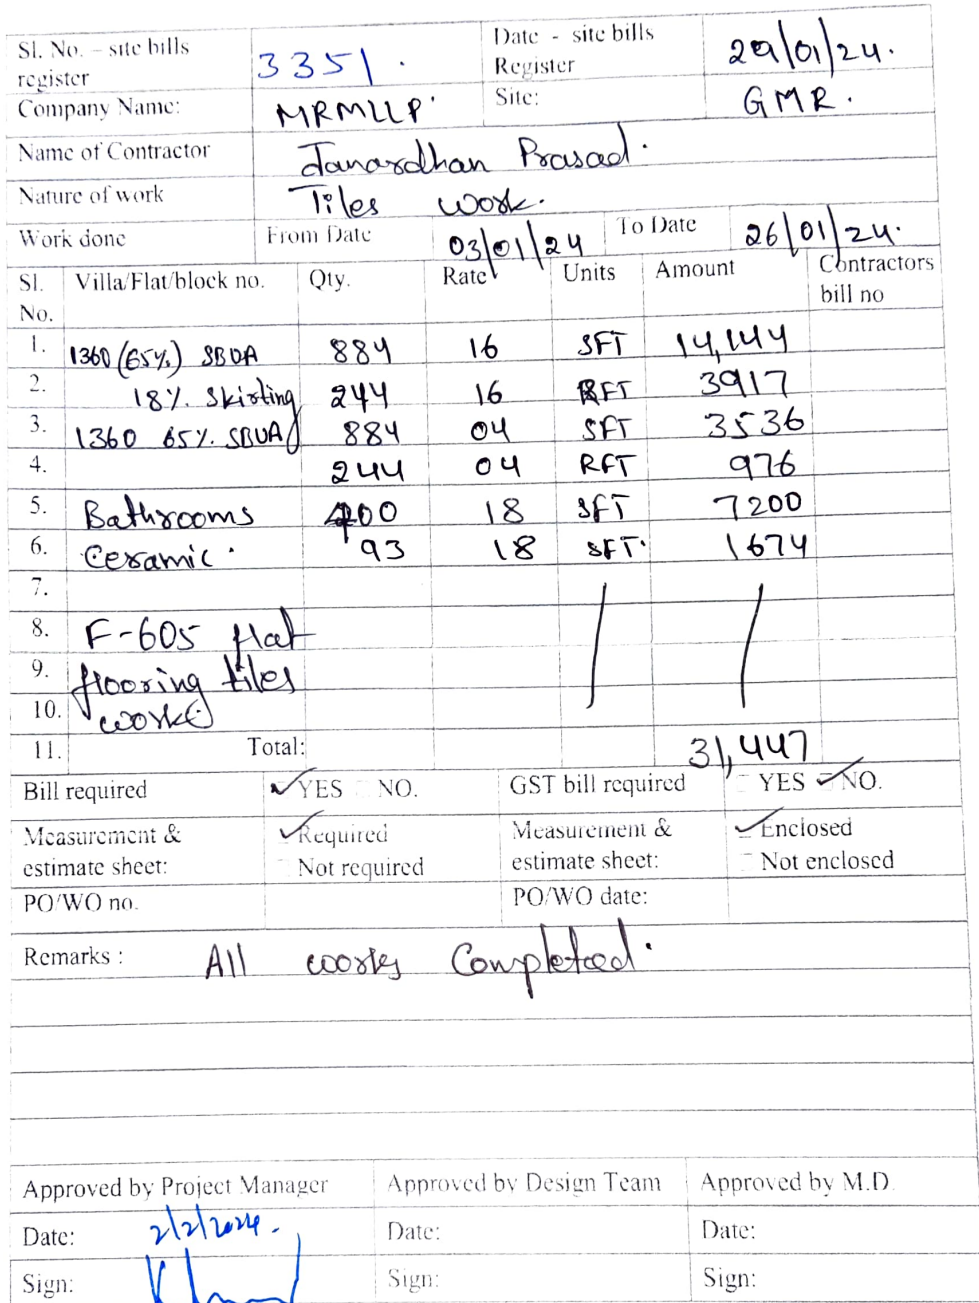 Sl. No. – site bills register 3351. Date - site bills Register 29/01/24.
Company Name: MRMLLP. Site: GMR.
Name of Contractor Janardhan Prasad.
Nature of work Tiles work.
Work done From Date 03/01/24 To Date 26/01/24.
Sl. No. Villa/Flat/block no. Qty. Rate Units Amount Contractors bill no
1. 1360 (65%) SBUA 884 16 SFT 14,144
2. 18% Skirting 244 16 RFT 3917
3. 1360 65% SBUA 884 04 SFT 3536
4. 244 04 RFT 976
5. Bathrooms 400 18 SFT 7200
6. Ceramic. 93 18 SFT. 1674
7.
8. F-605 flat
9. flooring tiles
10. work
11. Total: 31,447
Bill required YES NO. GST bill required YES NO.
Measurement & estimate sheet: Required Not required Measurement & estimate sheet: Enclosed Not enclosed
PO/WO no. PO/WO date:
Remarks : All works Completed.
Approved by Project Manager Approved by Design Team Approved by M.D.
Date: 2/2/2024. Date: Date:
Sign: Sign: Sign: